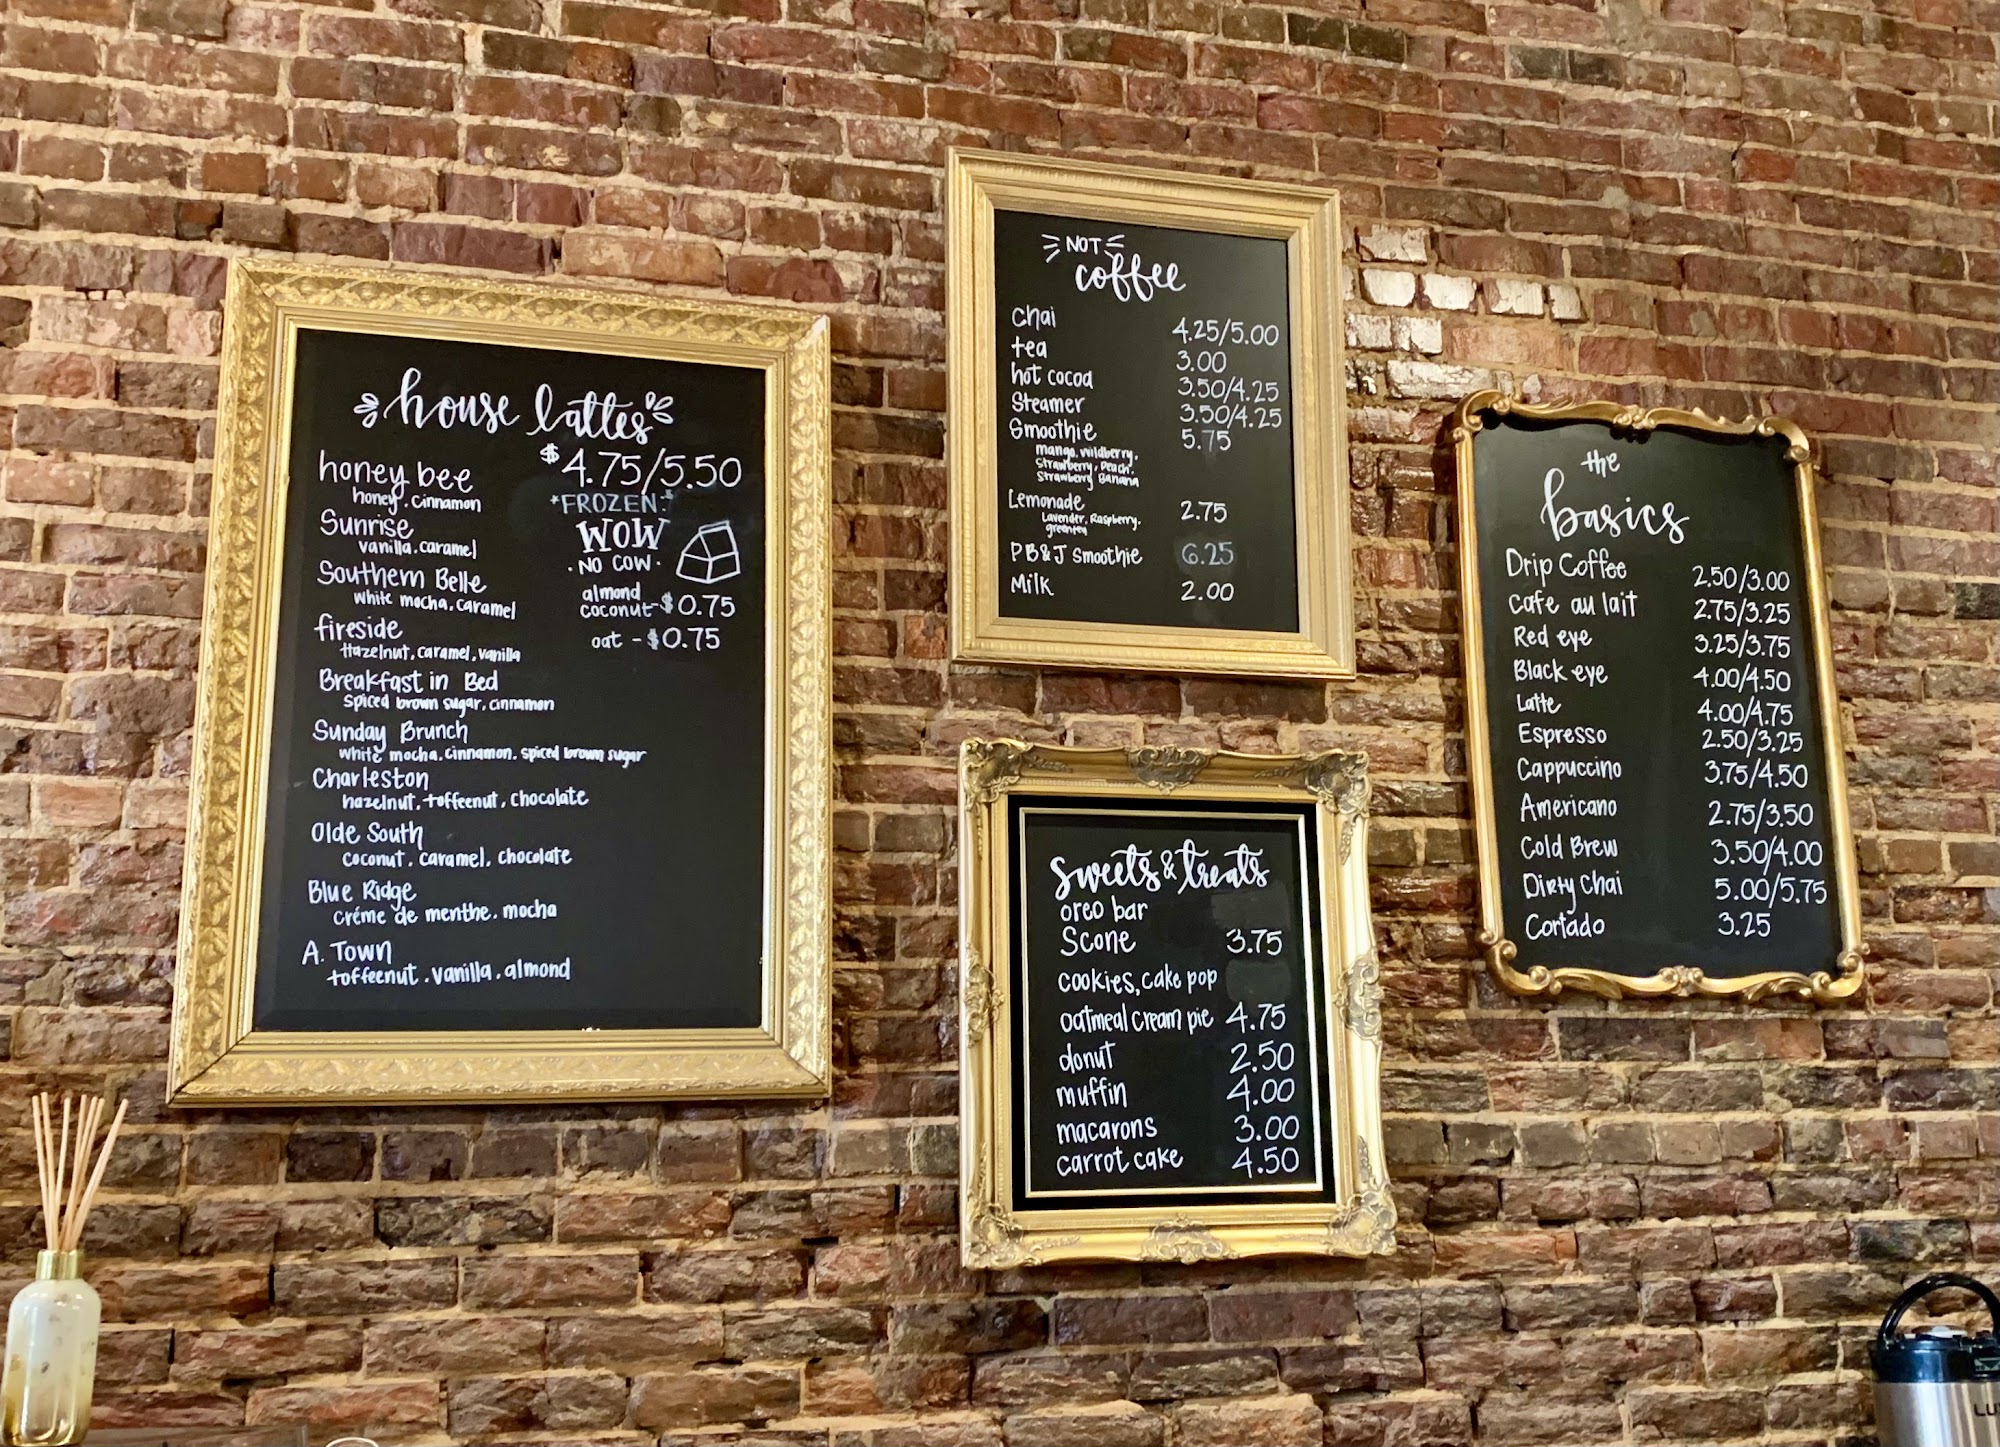 house lattes
$4.75/5.50
honey bee
honey, cinnamon
*FROZEN:
Sunrise
vanilla, caramel
WOW
· NO COW ·
Southern Belle
white mocha, caramel
almond
coconut - $0.75
fireside
Hazelnut, caramel, vanilla
oat - $0.75
Breakfast in Bed
spiced brown sugar, cinnamon
Sunday Brunch
white mocha, cinnamon, spiced brown sugar
Charleston
hazelnut, toffeenut, chocolate
Olde South
coconut, caramel, chocolate
Blue Ridge
créme de menthe, mocha
A. Town
toffeenut, vanilla, almond
NOT
coffee
Chai 4.25/5.00
tea 3.00
hot cocoa 3.50/4.25
Steamer 3.50/4.25
Smoothie 5.75
mango, wildberry,
Strawberry, Peach,
Strawberry Banana
Lemonade 2.75
Lavender, Raspberry,
greentea
PB&J Smoothie 6.25
Milk 2.00
Sweets & treats
oreo bar
Scone 3.75
cookies, cake pop
oatmeal cream pie 4.75
donut 2.50
muffin 4.00
macarons 3.00
carrot cake 4.50
the
basics
Drip Coffee 2.50/3.00
Cafe au lait 2.75/3.25
Red eye 3.25/3.75
Black eye 4.00/4.50
Latte 4.00/4.75
Espresso 2.50/3.25
Cappuccino 3.75/4.50
Americano 2.75/3.50
Cold Brew 3.50/4.00
Dirty Chai 5.00/5.75
Cortado 3.25